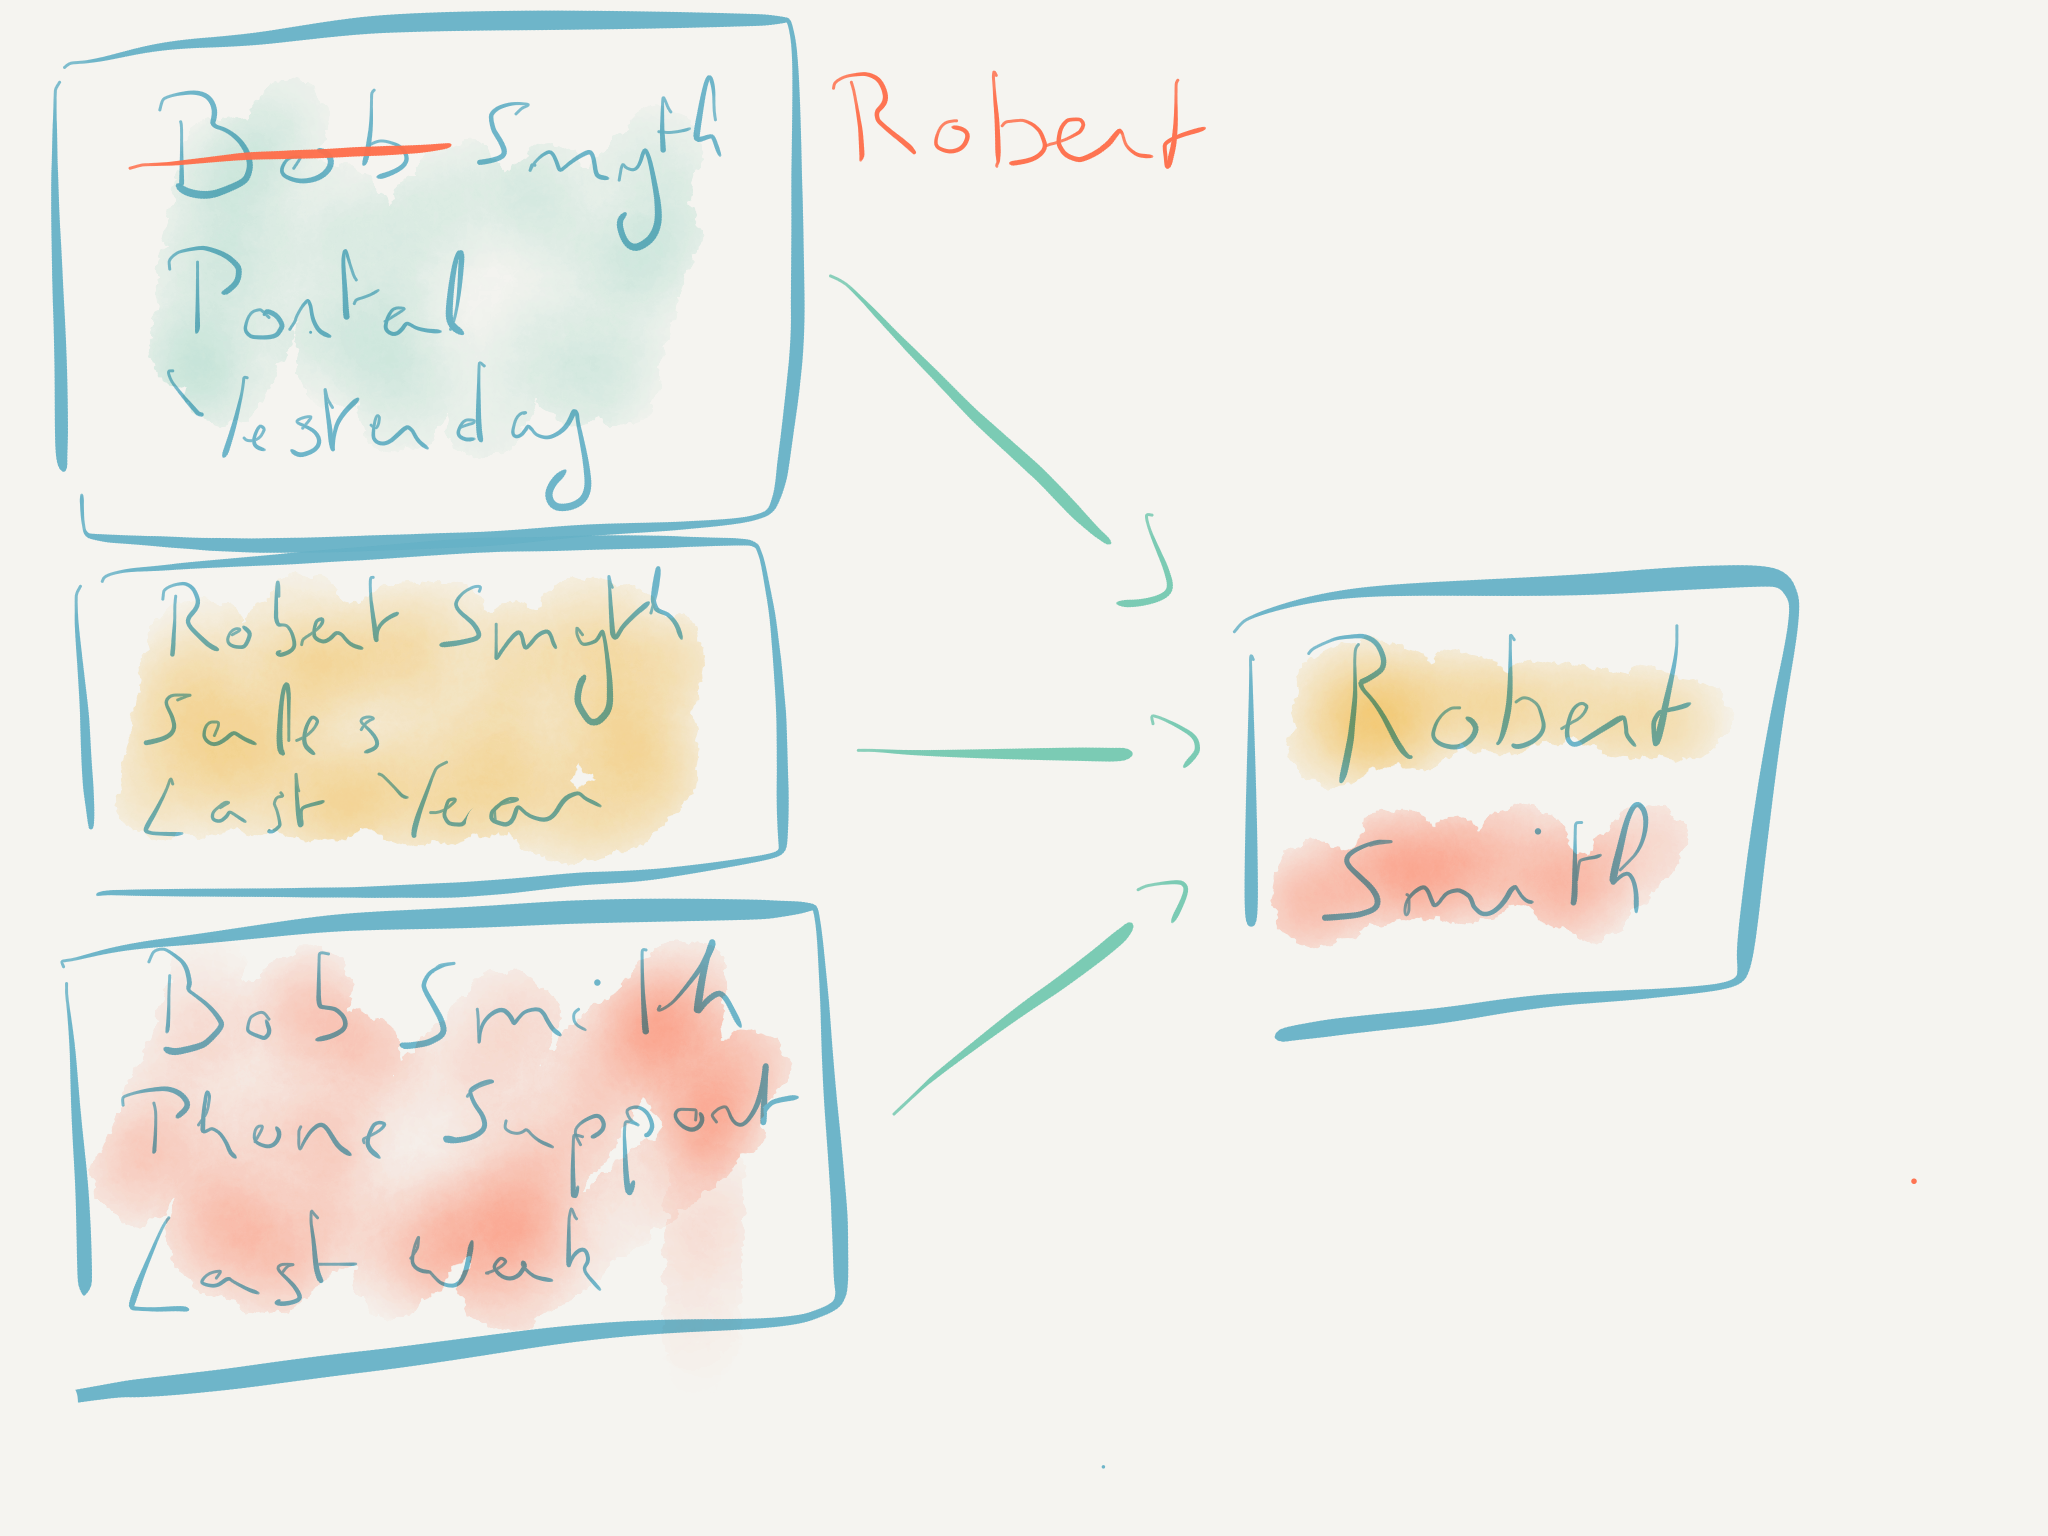 Bob Smyth
Robert
Portal
Yesterday
Robert Smyth
Sales
Last Year
Bob Smith
Phone Support
Last Week
Robert
Smith